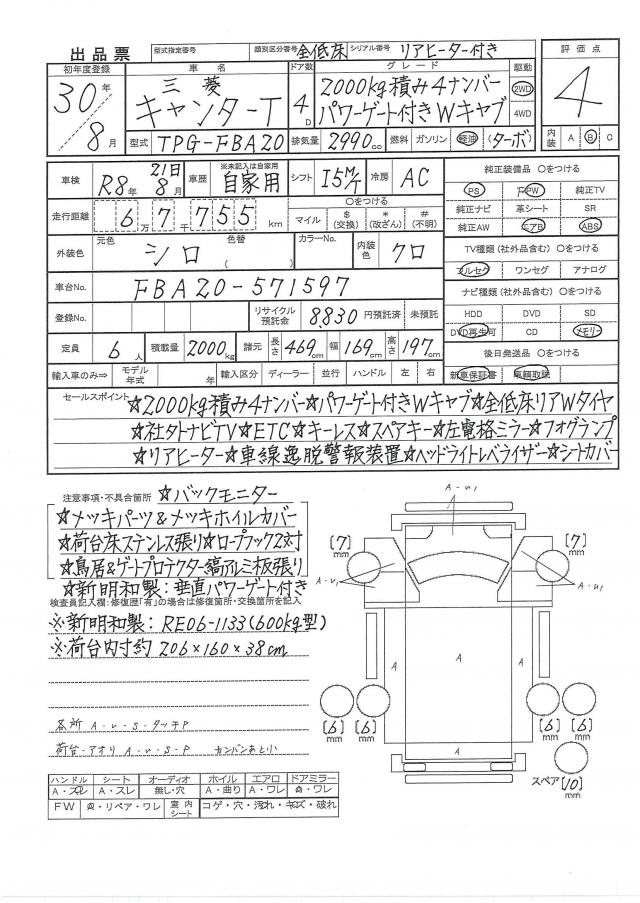 出品票 型式指定番号 類別区分番号 全低床 シリアル番号 リアヒーター付き
初年度登録 車名 ドア数 グレード 駆動 評価点
30年 三菱 4D 2000kg積み4ナンバー 2WD 4
8月 キャンターT パワーゲート付きWキャブ 4WD
型式 TPG-FBA20 排気量 2990cc 燃料 ガソリン 軽油 (ターボ) 内装 A B C
車検 R8年 8月 21日 車歴 ※未記入は自家用 自家用 シフト I5M/T 冷房 AC
純正装備品 〇をつける
PS PW 純正TV
走行距離 6万7千755km 〇をつける マイル $(交換) *(改ざん) #(不明)
純正ナビ 革シート SR
純正AW エアB ABS
外装色 元色 シロ 色替 ( ) カラーNo. 内装色 クロ
TV種類(社外品含む) 〇をつける
フルセグ ワンセグ アナログ
車台No. FBA20-571597
ナビ種類(社外品含む) 〇をつける
登録No. リサイクル預託金 8830 円預託済 未預託
HDD DVD SD
DVD再生可 CD メモリー
定員 6人 積載量 2000kg 諸元 長さ 469cm 幅 169cm 高さ 197cm
後日発送品 〇をつける
輸入車のみ⇒ モデル年式 年 輸入区分 ディーラー 並行 ハンドル 左 右
新車保証書 車輌取説
セールスポイント ☆2000kg積み4ナンバー☆パワーゲート付きWキャブ☆全低床リアWタイヤ
☆社外ナビTV☆ETC☆キーレス☆スペアキー☆左電格ミラー☆フォグランプ
☆リアヒーター☆車線逸脱警報装置☆ヘッドライトレベライザー☆シートカバー
注意事項・不具合箇所 ☆バックモニター
☆メッキパーツ&メッキホイルカバー
☆荷台床ステンレス張り☆ロープフック2対
☆鳥居&ゲートプロテクター縞アルミ板張り
☆新明和製:垂直パワーゲート付き
検査員記入欄:修復歴「有」の場合は修復箇所・交換箇所を記入
※新明和製: RE06-1133(600kg型)
※荷台内寸約 206×160×38cm
各所 A-U-S-タッチP
荷台・アオリ A-U-S-P カンバンあと小
A-U1
[7]mm [7]mm
A-U1 A-U1
A A A
[6]mm [6]mm [6]mm [6]mm
A
スペア [10]mm
ハンドル シート オーディオ ホイル エアロ ドアミラー
A・スレ A・スレ 無し・穴 A・曲り A・ワレ A・ワレ
FW A・リペア・ワレ 室内シート コゲ・穴・汚れ・キズ・破れ